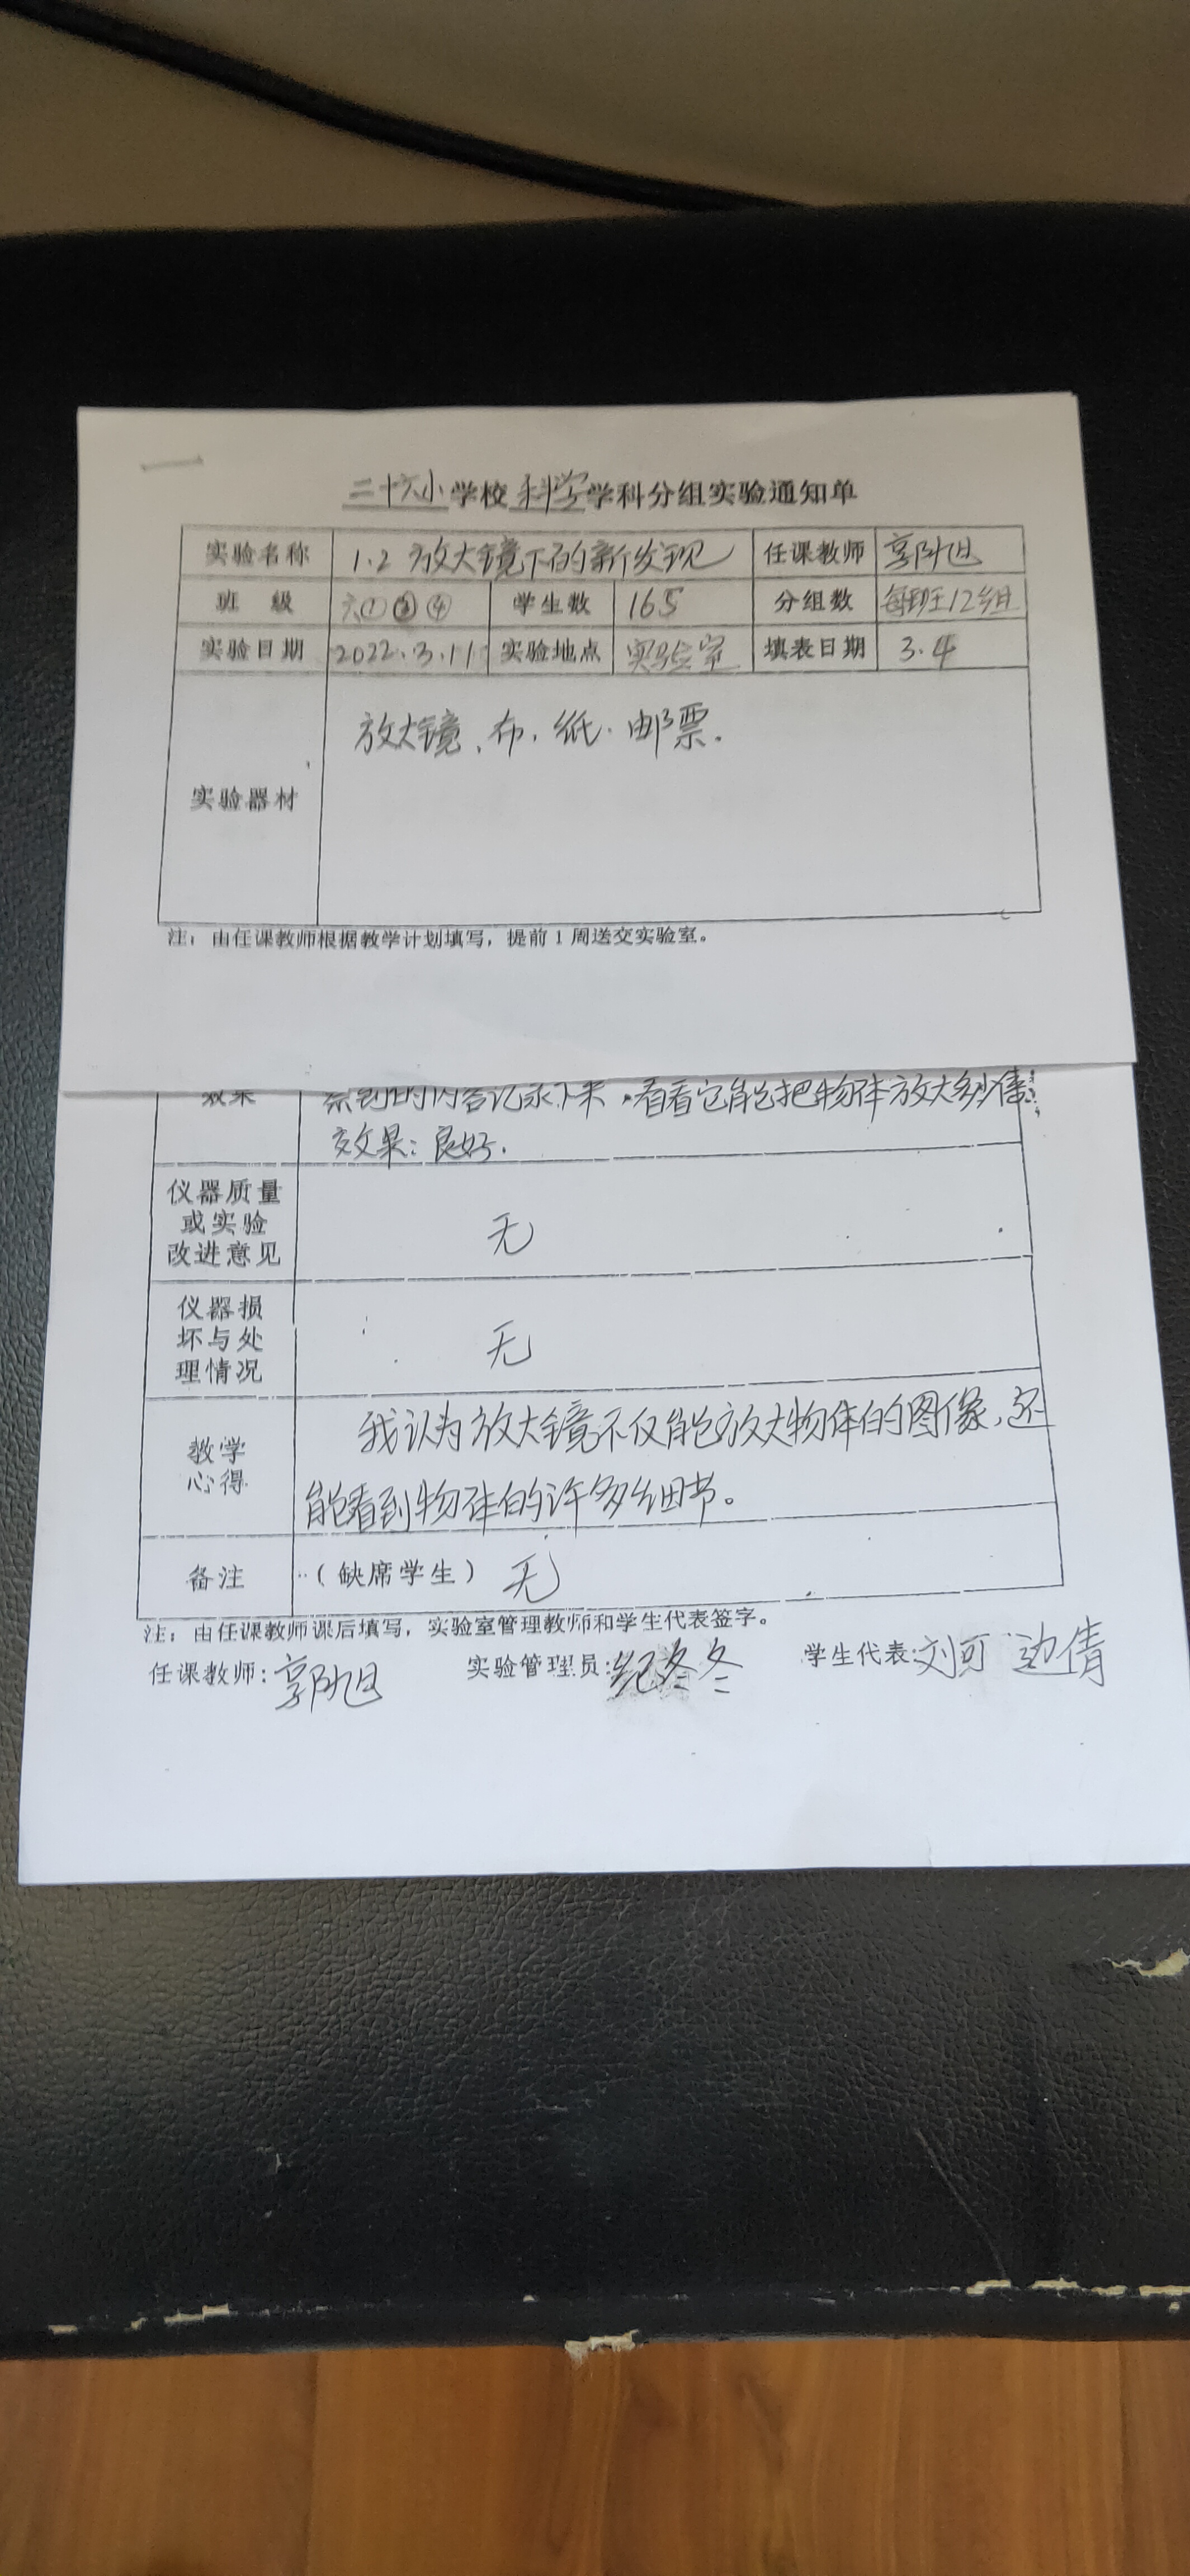 一
二十六小学校科学学科分组实验通知单
实验名称 1.2 放大镜下的新发现 任课教师 郭旭
班 级 六①③④ 学生数 165 分组数 每班12组
实验日期 2022.3.11 实验地点 实验室 填表日期 3.4
放大镜、布、纸、邮票.
实验器材
注：由任课教师根据教学计划填写，提前1周送交实验室。
效果 察到的内容记录下来，看看它能把物体放大多少倍
效果：良好.
仪器质量
或实验 无
改进意见
仪器损
坏与处 无
理情况
我认为放大镜不仅能放大物体的图像，还
教学
心得
能看到物体的许多细节。
备注 （缺席学生） 无
注：由任课教师课后填写，实验室管理教师和学生代表签字。
任课教师：郭旭 实验管理员：纪冬冬 学生代表：刘可 边倩